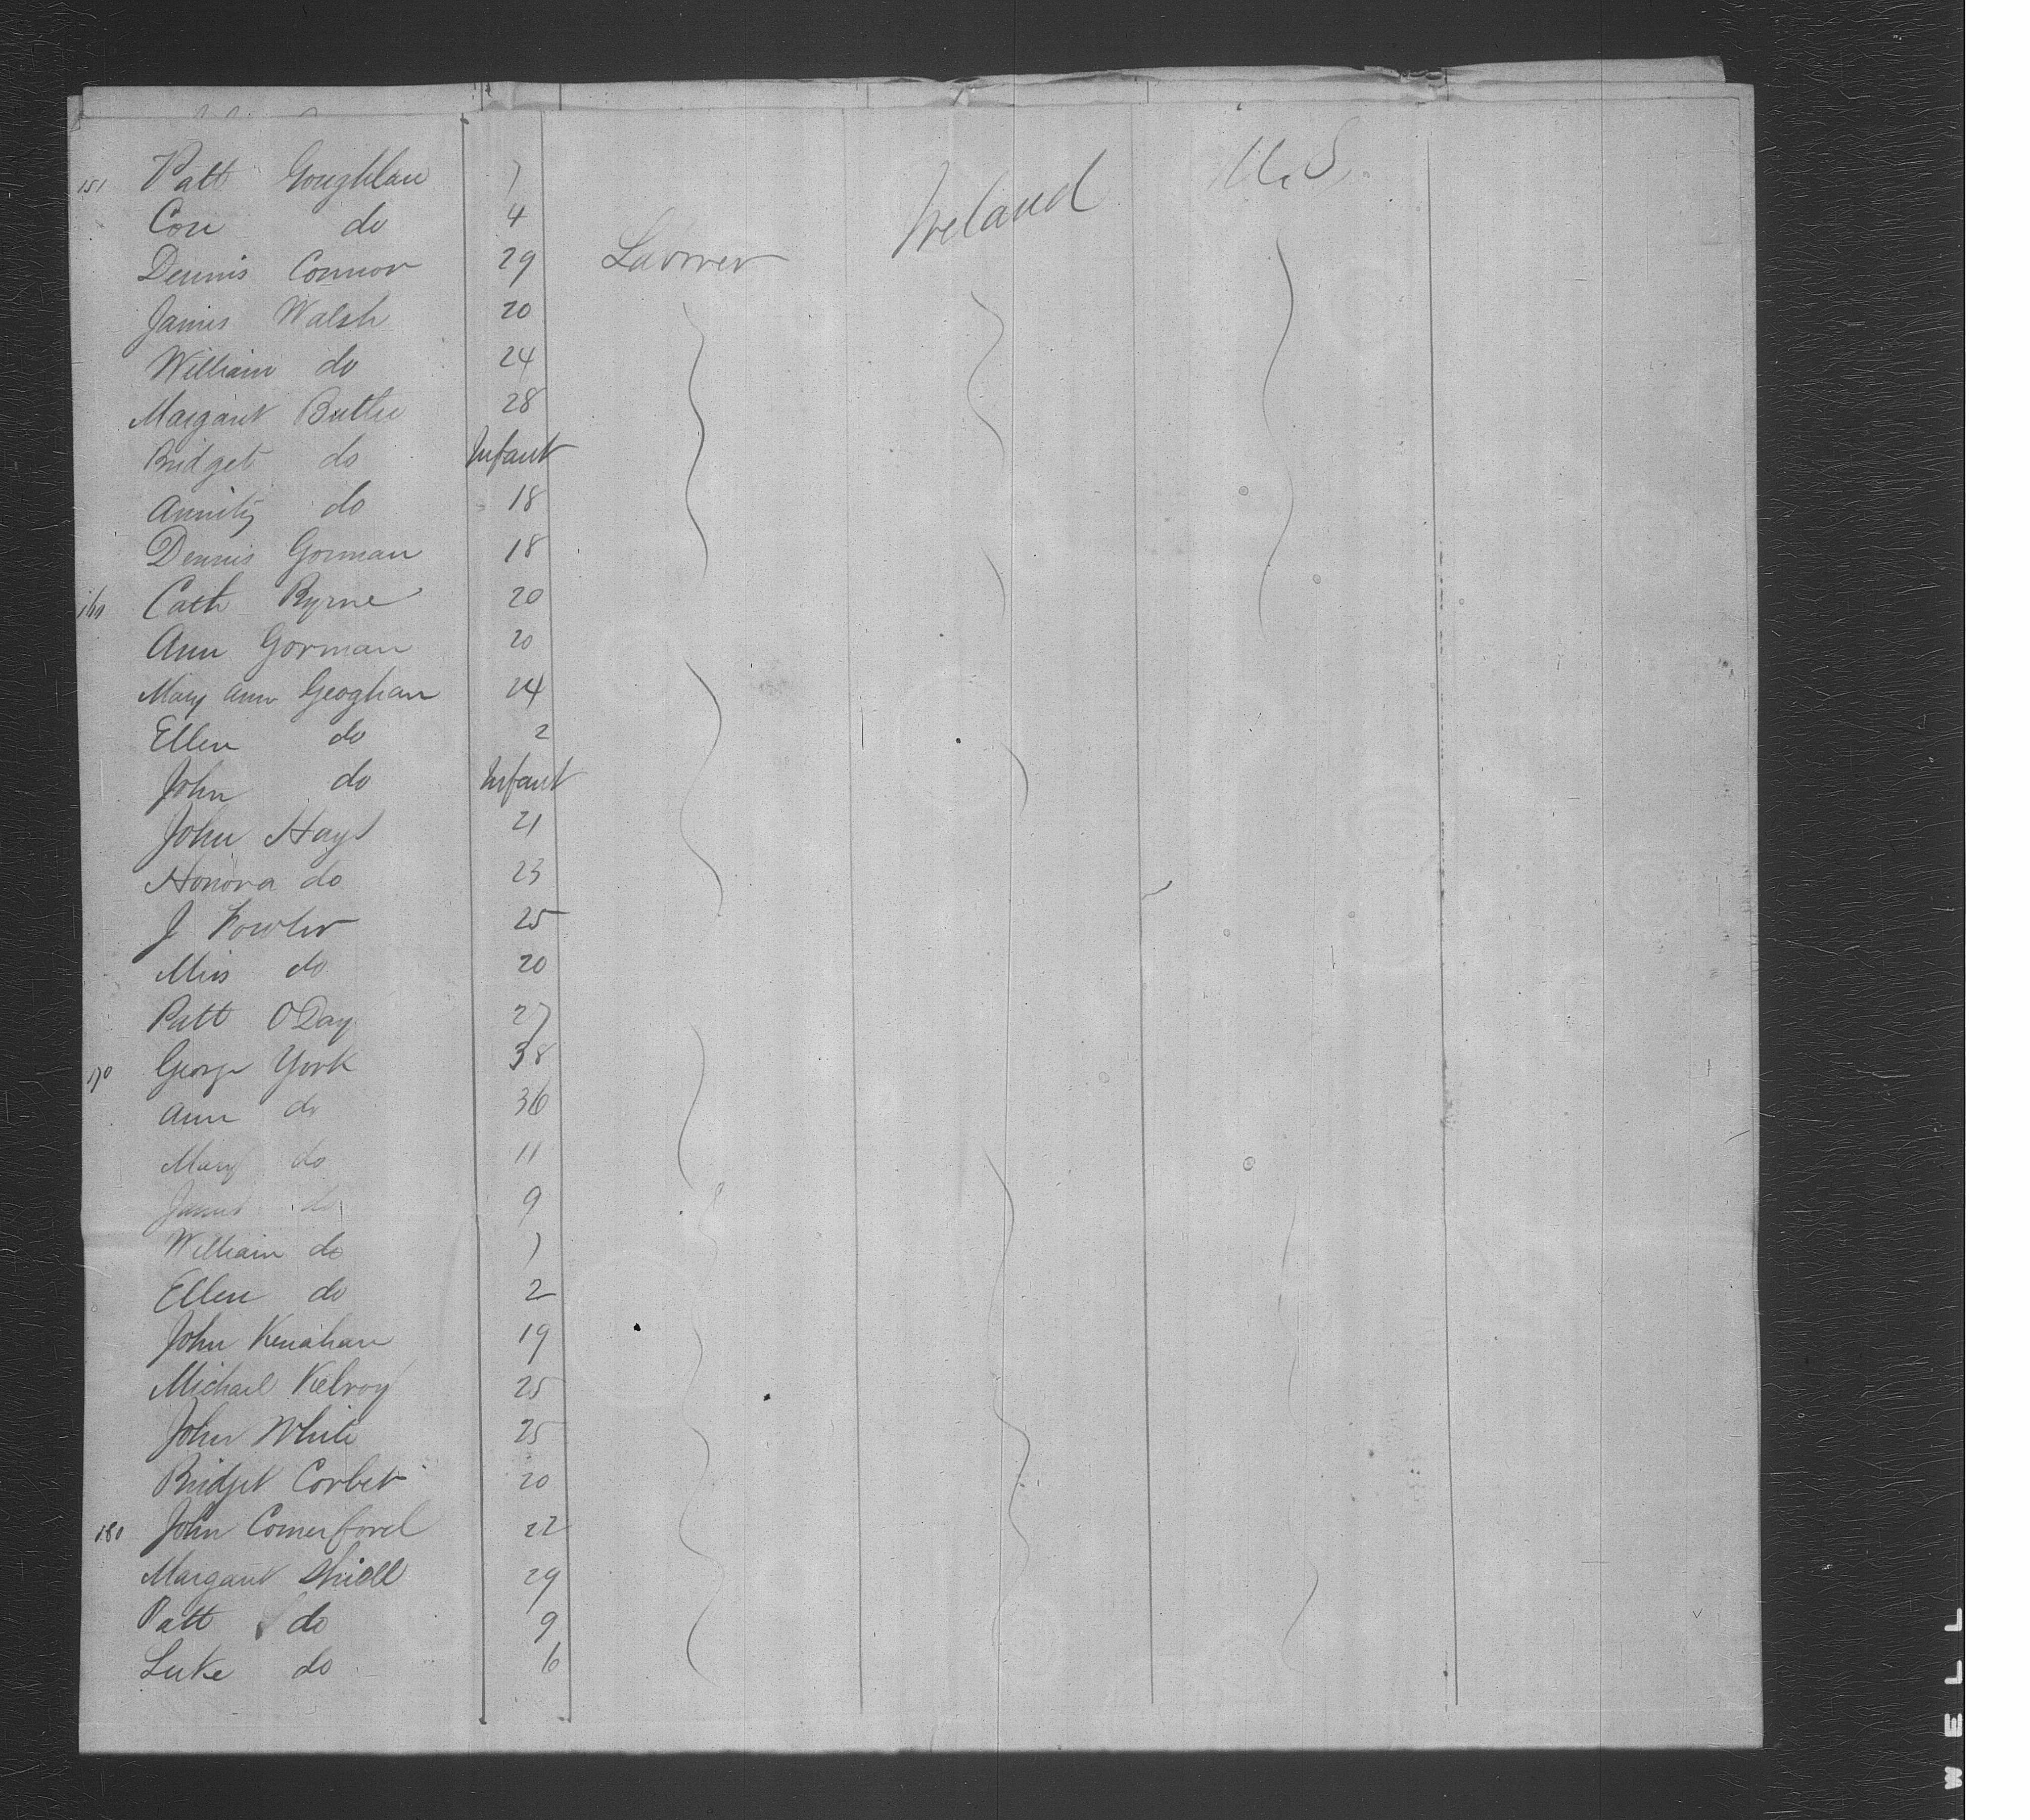 151 Patt Goughlan 7 U.S.
Con do 4 Ireland
Dennis Connor 29 Laorrer
James Walsh 20
William do 24
Margaret Butler 28
Bridget do Infant
do 18
Dennis Gorman 18
160 Cath Byrne 20
Ann Gorman 20
Mary Ann Geoghan 24
Ellen do 2
John do Infant
John Hays 21
Honora do 23
J Fowler 25
Mrs do 20
Patt ODay 27
170 George York 38
Ann do 36
Mary do 11
James do 9
William do 7
Ellen do 2
John Kenahan 19
Michael Kelroy 25
John White 25
Bridget Corbet 20
180 John Comerford 22
Margaret Shiell 29
Patt do 9
Luke do 6
WELL